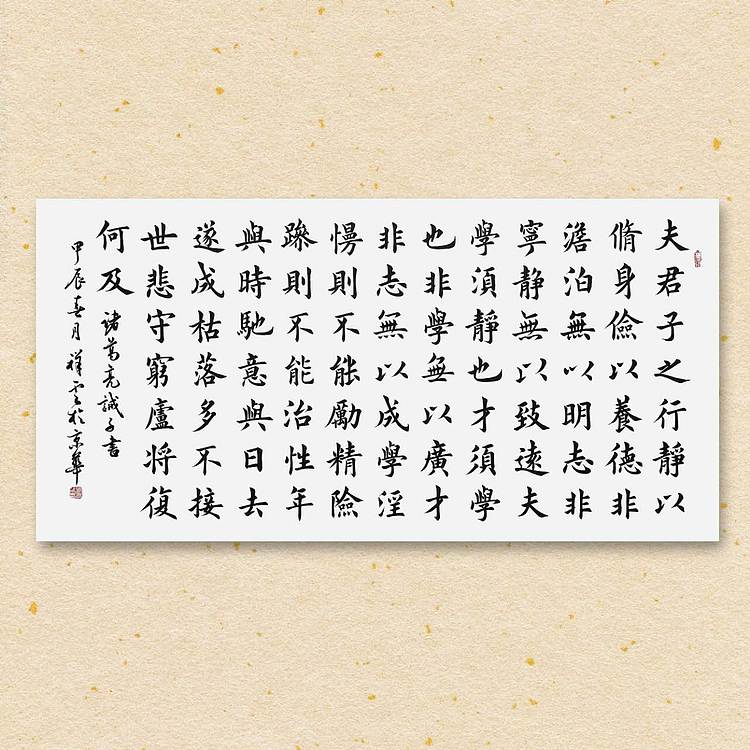 夫君子之行靜以
脩身儉以養德非
澹泊無以明志非
寧静無以致逺夫
學須靜也才須學
也非學無以廣才
非志無以成學淫
慢則不能勵精險
躁則不能治性年
與時馳意與日去
遂成枯落多不接
世悲守窮廬将復
何及 諸葛亮誡子書
甲辰春月祥雲於京華